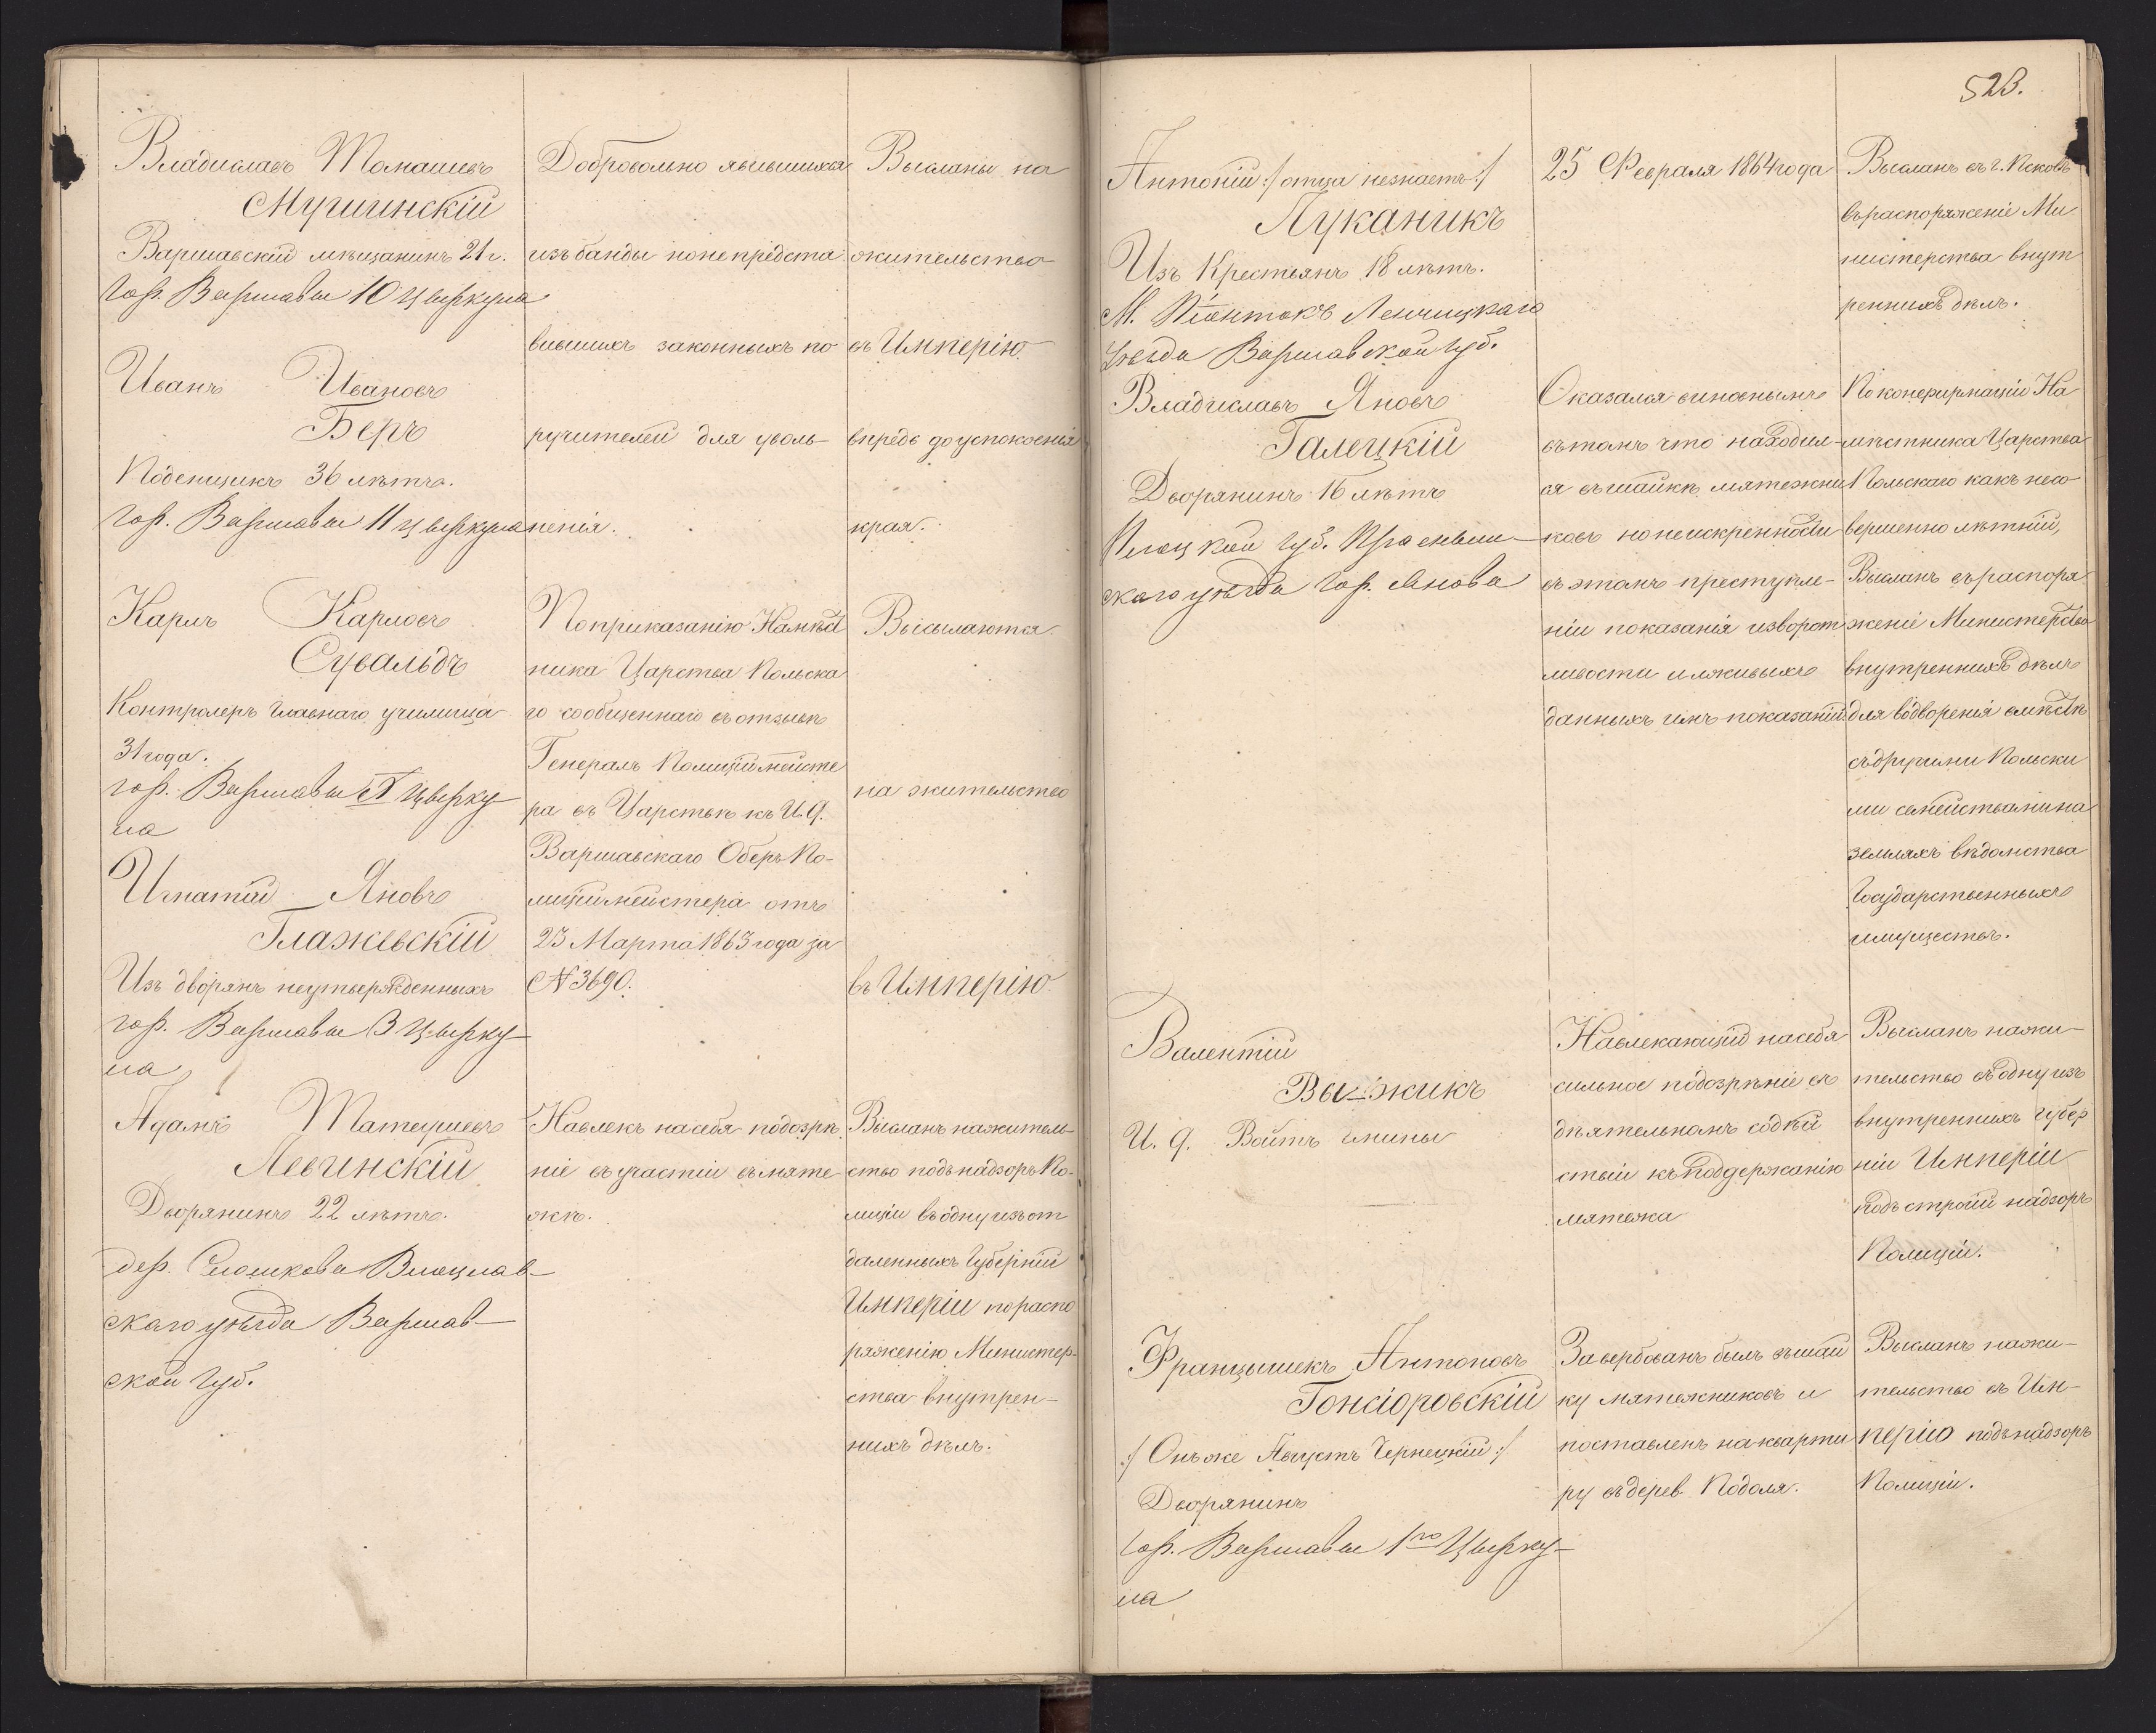 Владиславъ Томашевъ
Мушинскій
Варшавскій мѣщанинъ 21 г.
Гор. Варшавы 10 Циркула
Иванъ Ивановъ
Беръ
Поденщикъ 36 лѣтъ.
Гор. Варшавы 11 Циркула
Карлъ Карловъ
Сувальдъ
Контролеръ Главнаго училища
31 года.
гор. Варшавы Цирку-
ла
Игнатій Яновъ
Глажевскій
Изъ дворянъ неутвержденныхъ
гор. Варшавы 3 Цирку-
ла
Адамъ Матеушевъ
Левинскій
Дворянинъ 22 лѣтъ.
дер. Влоцлав-
скаго уѣзда Варшав-
ской Губ.
Добровольно явившихся
изъ банды но не предста
вившихъ законныхъ по
ручителей для уволь-
ненія.
По приказанію Намѣст
ника Царства Польска
го сообщеннаго въ отзывѣ
Генералъ Полиціймейсте
ра въ Царствѣ къ И. Д.
Варшавскаго Оберъ По-
лиціймейстера отъ
23 Марта 1863 года за
N 3690.
Навлекъ на себя подозрѣ
ніе въ участіи въ мяте
жѣ.
Высланы на
жительство
въ Имперію
впредь до успокоенія
края.
Высылаются
на жительство
въ Имперію
Высланъ на житель
ство подъ надзоръ По-
лиціи въ одну изъ от
даленныхъ Губерній
Имперіи по распо
ряженію Министер-
ства внутрен-
нихъ дѣлъ.
523.
Антоній :/ отца незнаетъ :/
Луканикъ
Изъ Крестьянъ 18 лѣтъ.
М. Піонтокъ Ленчицкаго
Уѣзда Варшавской Губ.
Владиславъ Яновъ
Галецкій
Дворянинъ 16 лѣтъ
Плоцкой Губ. Прасныш-
скаго уѣзда Гор. Янова
Валентій
Выжикъ
И. Д. Войтъ гмины
Францышекъ Антоновъ
Гонсіоровскій
:/ Онъ же Августъ Чернецкій :/
Дворянинъ
Гор. Варшавы 1го Цирку-
ла
25 Февраля 1864 года
Оказался виновнымъ
въ томъ что находил-
ся въ шайкѣ мятежни
ковъ но неискренности
въ этомъ преступле-
ніи показанія изворот
ливости и лживыхъ
данныхъ имъ показаній
Навлекающій на себя
сильное подозрѣніе въ
дѣятельномъ содѣй
ствіи къ поддержанію
мятежа
Завербованъ былъ въ шай
ку мятежниковъ и
поставленъ на кварти
ру въ дерев. Подоля.
Высланъ въ г. Псковъ
въ распоряженіе Ми
нистерства внут
реннихъ дѣлъ.
По конфирмаціи На
мѣстника Царства
Польскаго какъ несо
вершенно лѣтній,
Высланъ въ распоря
женіе Министерства
внутреннихъ дѣлъ
для водворенія вмѣстѣ
съ другими Польски
ми семействами на
земляхъ вѣдомства
Государственныхъ
имуществъ.
Высланъ на жи-
тельство въ одну изъ
внутреннихъ губер
ній Имперіи
подъ строгій надзоръ
Полиціи.
Высланъ на жи-
тельство въ Им-
перію подъ надзоръ
Полиціи.